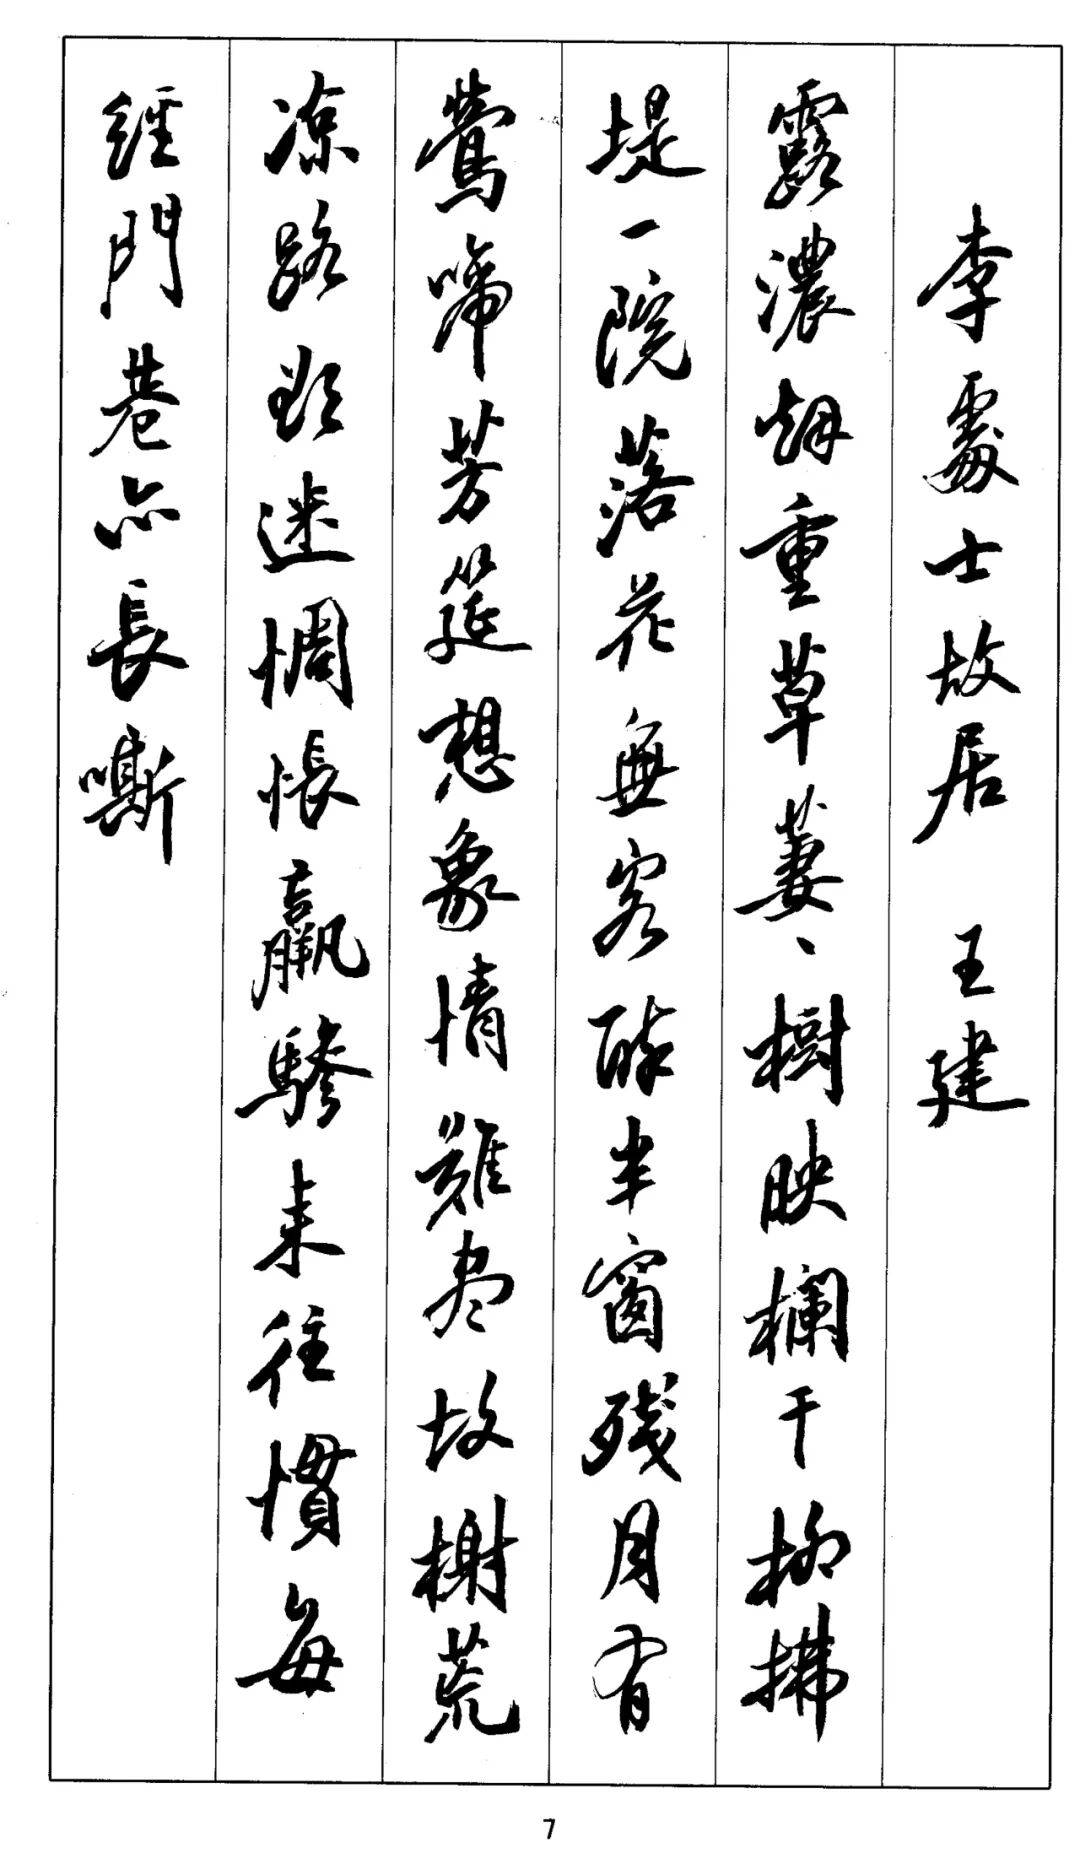 李處士故居 王建
露濃烟重草萋、樹映欄干柳拂
堤一院落花無客醉半窗残月有
鶯啼芳筵想象情難尽故榭荒
凉路欲迷惆悵羸驂来往慣每
經門巷亦長嘶
7